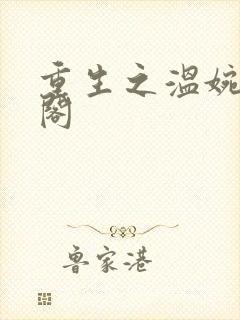 重生之温婉
阁
鲁家港